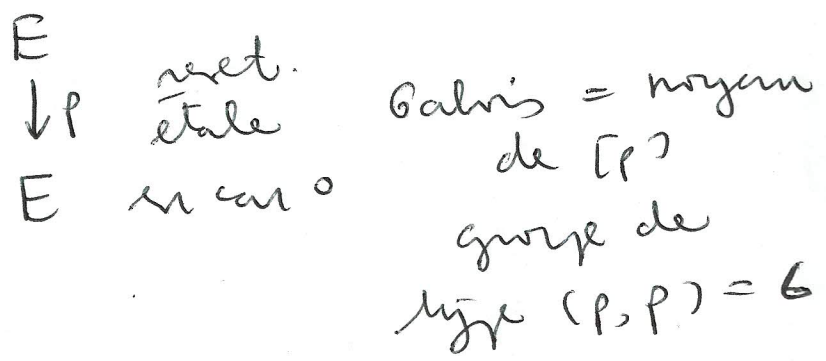 E
↓ p revet. étale
E en car 0
Galois = noyau
de [p]
groupe de
type (p, p) = G